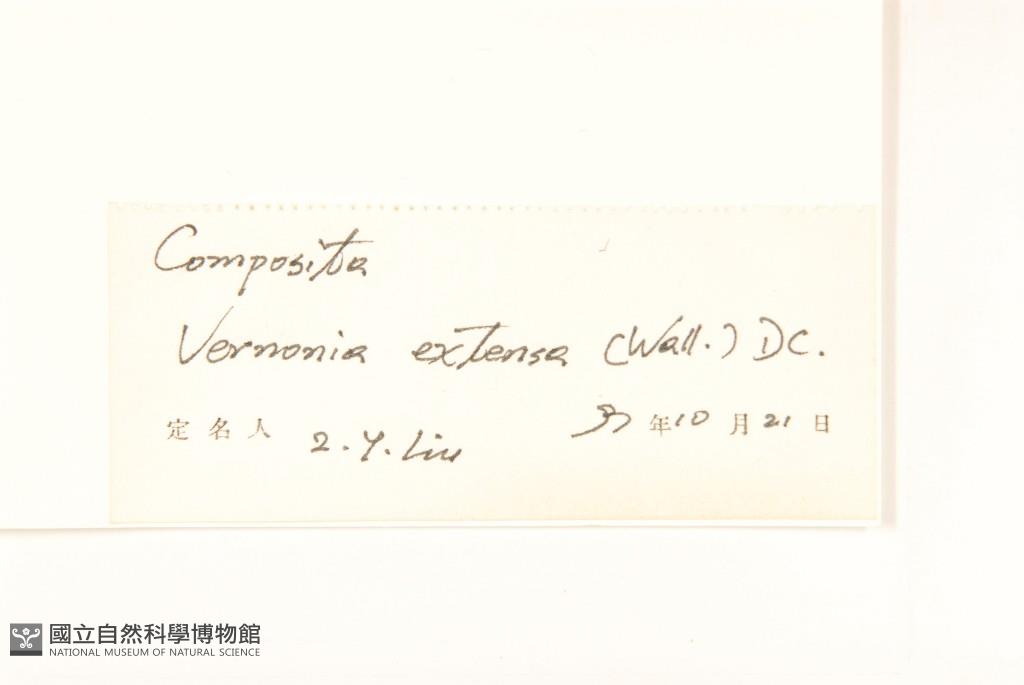 Composita
Vernonia extensa (Wall.) DC.
定名人 Z. Y. Liu 年10月21日
國立自然科學博物館
NATIONAL MUSEUM OF NATURAL SCIENCE